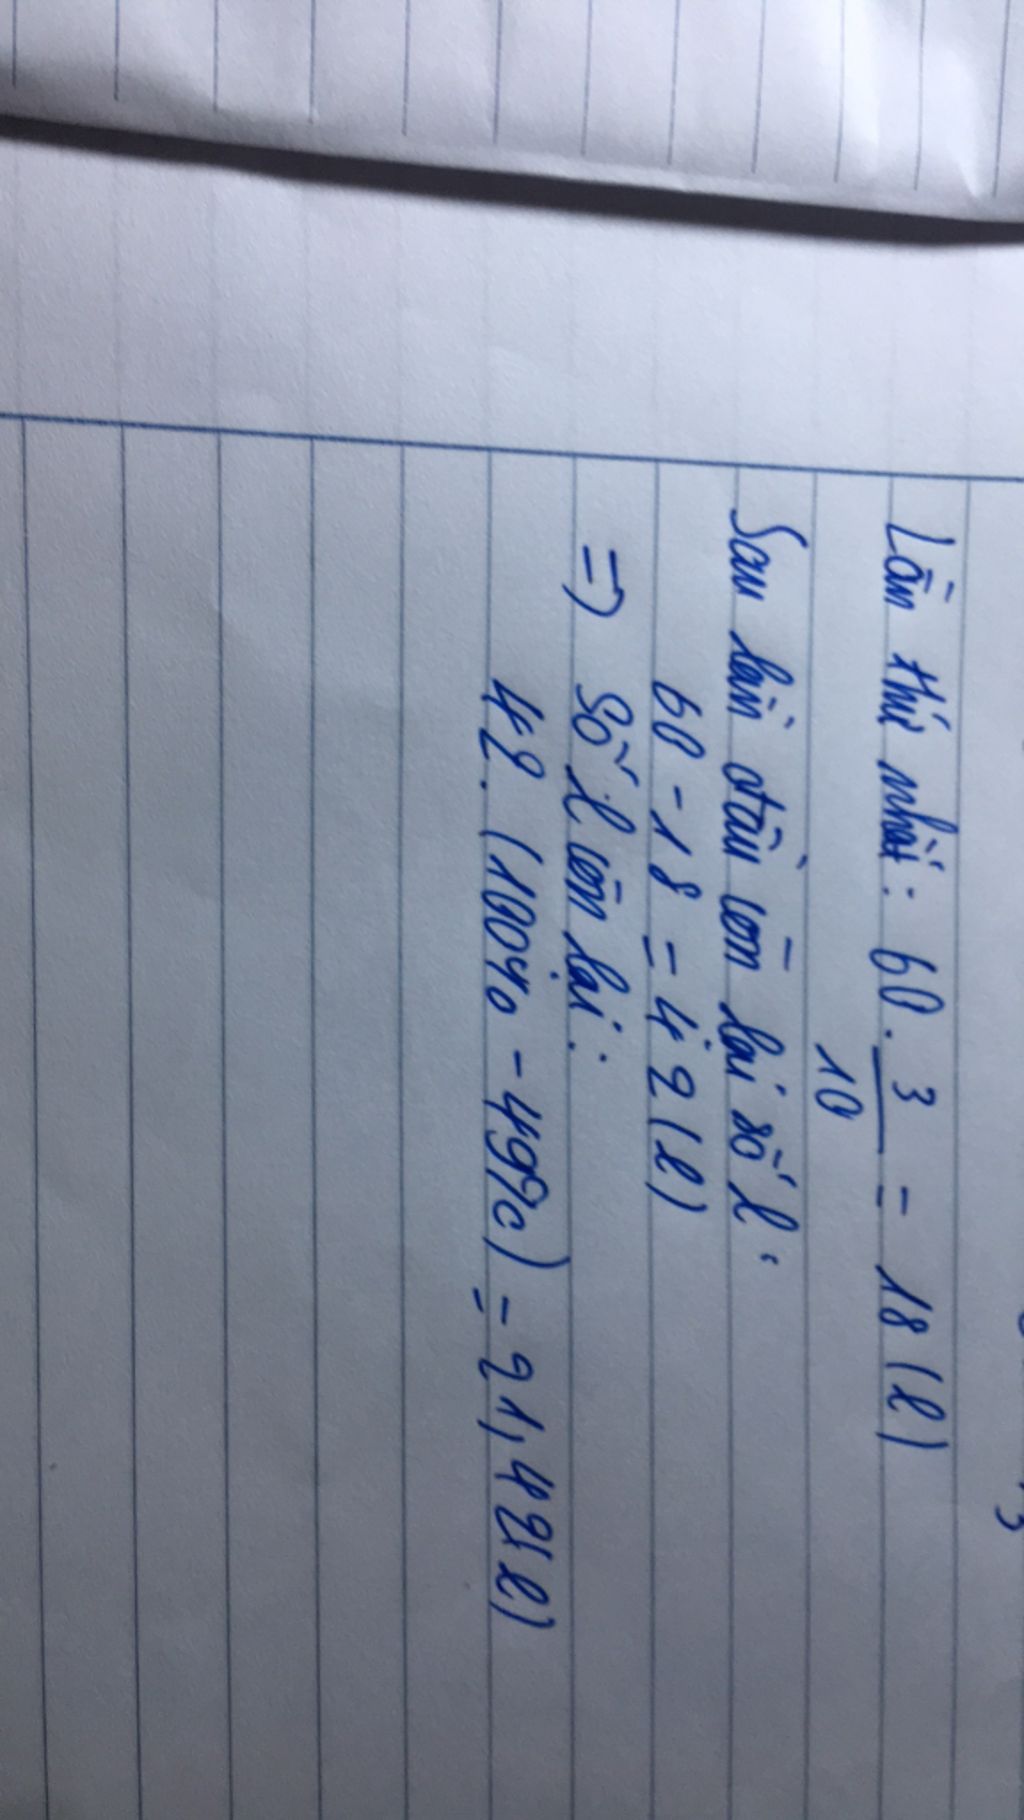 Lần thứ nhất: 60 . 3/10 = 18 (l)
Sau lần đầu còn lại số l:
60 - 18 = 42 (l)
=> Số l còn lại:
42. (100% - 49%) = 21,42(l)